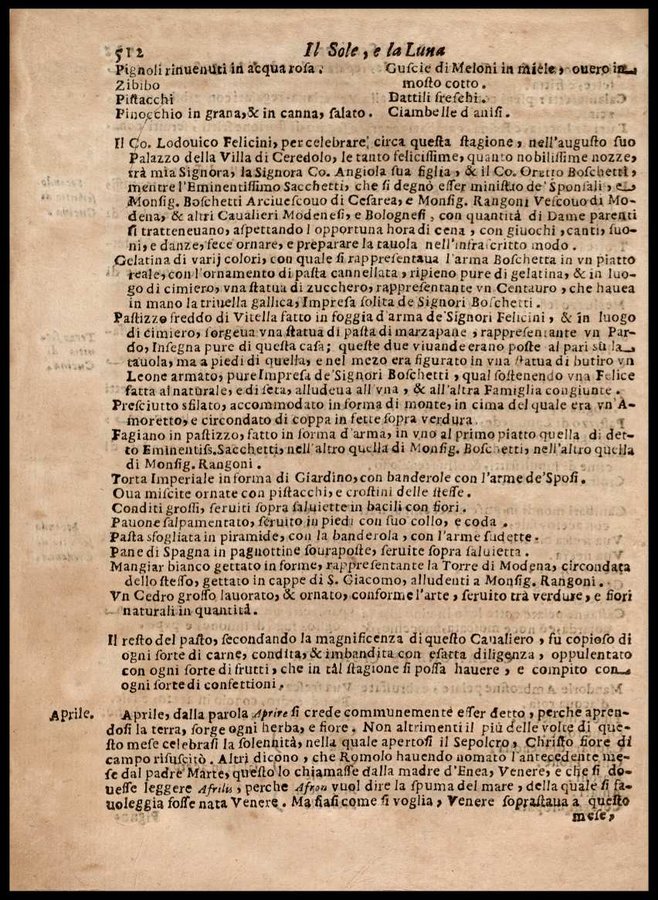 512 Il Sole, e la Luna
Pignoli rinuenuti in acqua rosa.
Zibibo
Pistacchi
Finocchio in grana, & in canna, salato.
Guscie di Meloni in miele, ouero in
mosto cotto.
Dattili freschi.
Ciambelle d'anisi.
Il Co. Lodouico Felicini, per celebrare, circa questa stagione, nell'augusto suo
Palazzo della Villa di Ceredolo, le tanto felicissime, quanto nobilissime nozze,
trà mia Signora, la Signora Co. Angiola sua figlia, & il Co. Oretto Boschetti,
mentre l'Eminentissimo Sacchetti, che si degnò esser ministro de' Sponsali, e
Monsig. Boschetti Arciuescouo di Cesarea, e Monsig. Rangoni Vescouo di Mo-
dena, & altri Caualieri Modenesi, e Bolognesi, con quantità di Dame parenti
si tratteneuano, aspettando l'opportuna hora di cena, con giuochi, canti, suo-
ni, e danze, fece ornare, e preparare la tauola nell'infrascritto modo.
Gelatina di varij colori, con quale si rappresentaua l'arma Boschetta in vn piatto
reale, con l'ornamento di pasta cannellata, ripieno pure di gelatina, & in luo-
go di cimiero, vna statua di zucchero, rappresentante vn Centauro, che hauea
in mano la triuella gallica, Impresa solita de Signori Boschetti.
Pastizzo freddo di Vitella fatto in foggia d'arma de' Signori Felicini, & in luogo
di cimiero, sorgeua vna statua di pasta di marzapane, rappresentante vn Par-
do, Insegna pure di questa casa; queste due viuande erano poste al pari sù la
tauola, ma a piedi di quella, e nel mezo era figurato in vna statua di butiro vn
Leone armato, pure Impresa de' Signori Boschetti, qual sostenendo vna Felice
fatta al naturale, e di seta, alludeua all'vna, & all'altra Famiglia congiunte.
Presciutto sfilato, accommodato in forma di monte, in cima del quale era vn' A-
moretto, e circondato di coppa in fette sopra verdura.
Fagiano in pastizzo, fatto in forma d'arma, in vno al primo piatto quella di det-
to Eminentiss. Sacchetti, nell'altro quella di Monsig. Boschetti, nell'altro quella
di Monsig. Rangoni.
Torta Imperiale in forma di Giardino, con banderole con l'arme de' Sposi.
Oua miscite ornate con pistacchi, e crostini delle stesse.
Conditi grossi, seruiti sopra saluiette in bacili con fiori.
Pauone salpamentato, seruito in piedi con suo collo, e coda.
Pasta sfogliata in piramide, con la banderola, con l'arme sudette.
Pane di Spagna in pagnottine souraposte, seruite sopra saluietta.
Mangiar bianco gettato in forme, rappresentante la Torre di Modena, circondata
dello stesso, gettato in cappe di S. Giacomo, alludenti a Monsig. Rangoni.
Vn Cedro grosso lauorato, & ornato, conforme l'arte, seruito trà verdure, e fiori
naturali in quantità.
Il resto del pasto, secondando la magnificenza di questo Caualiero, fu copioso di
ogni sorte di carne, condita, & imbandita con esatta diligenza, oppulentato
con ogni sorte di frutti, che in tal stagione si possa hauere, e compito con
ogni sorte di confettioni.
Aprile. Aprile, dalla parola Aprire si crede communemente esser detto, perche apren-
dosi la terra, sorge ogni herba, e fiore. Non altrimenti il più delle volte di que-
sto mese celebrasi la solennità, nella quale apertosi il Sepolcro, Christo fiore di
campo risuscitò. Altri dicono, che Romolo hauendo nomato l'antecedente me-
se dal padre Marte, questo lo chiamasse dalla madre d'Enea, Venere, e che si do-
uesse leggere Afrilis, perche Afron vuol dire la spuma del mare, della quale si fa-
uoleggia fosse nata Venere. Ma siasi come si voglia, Venere soprastaua a questo
mese,